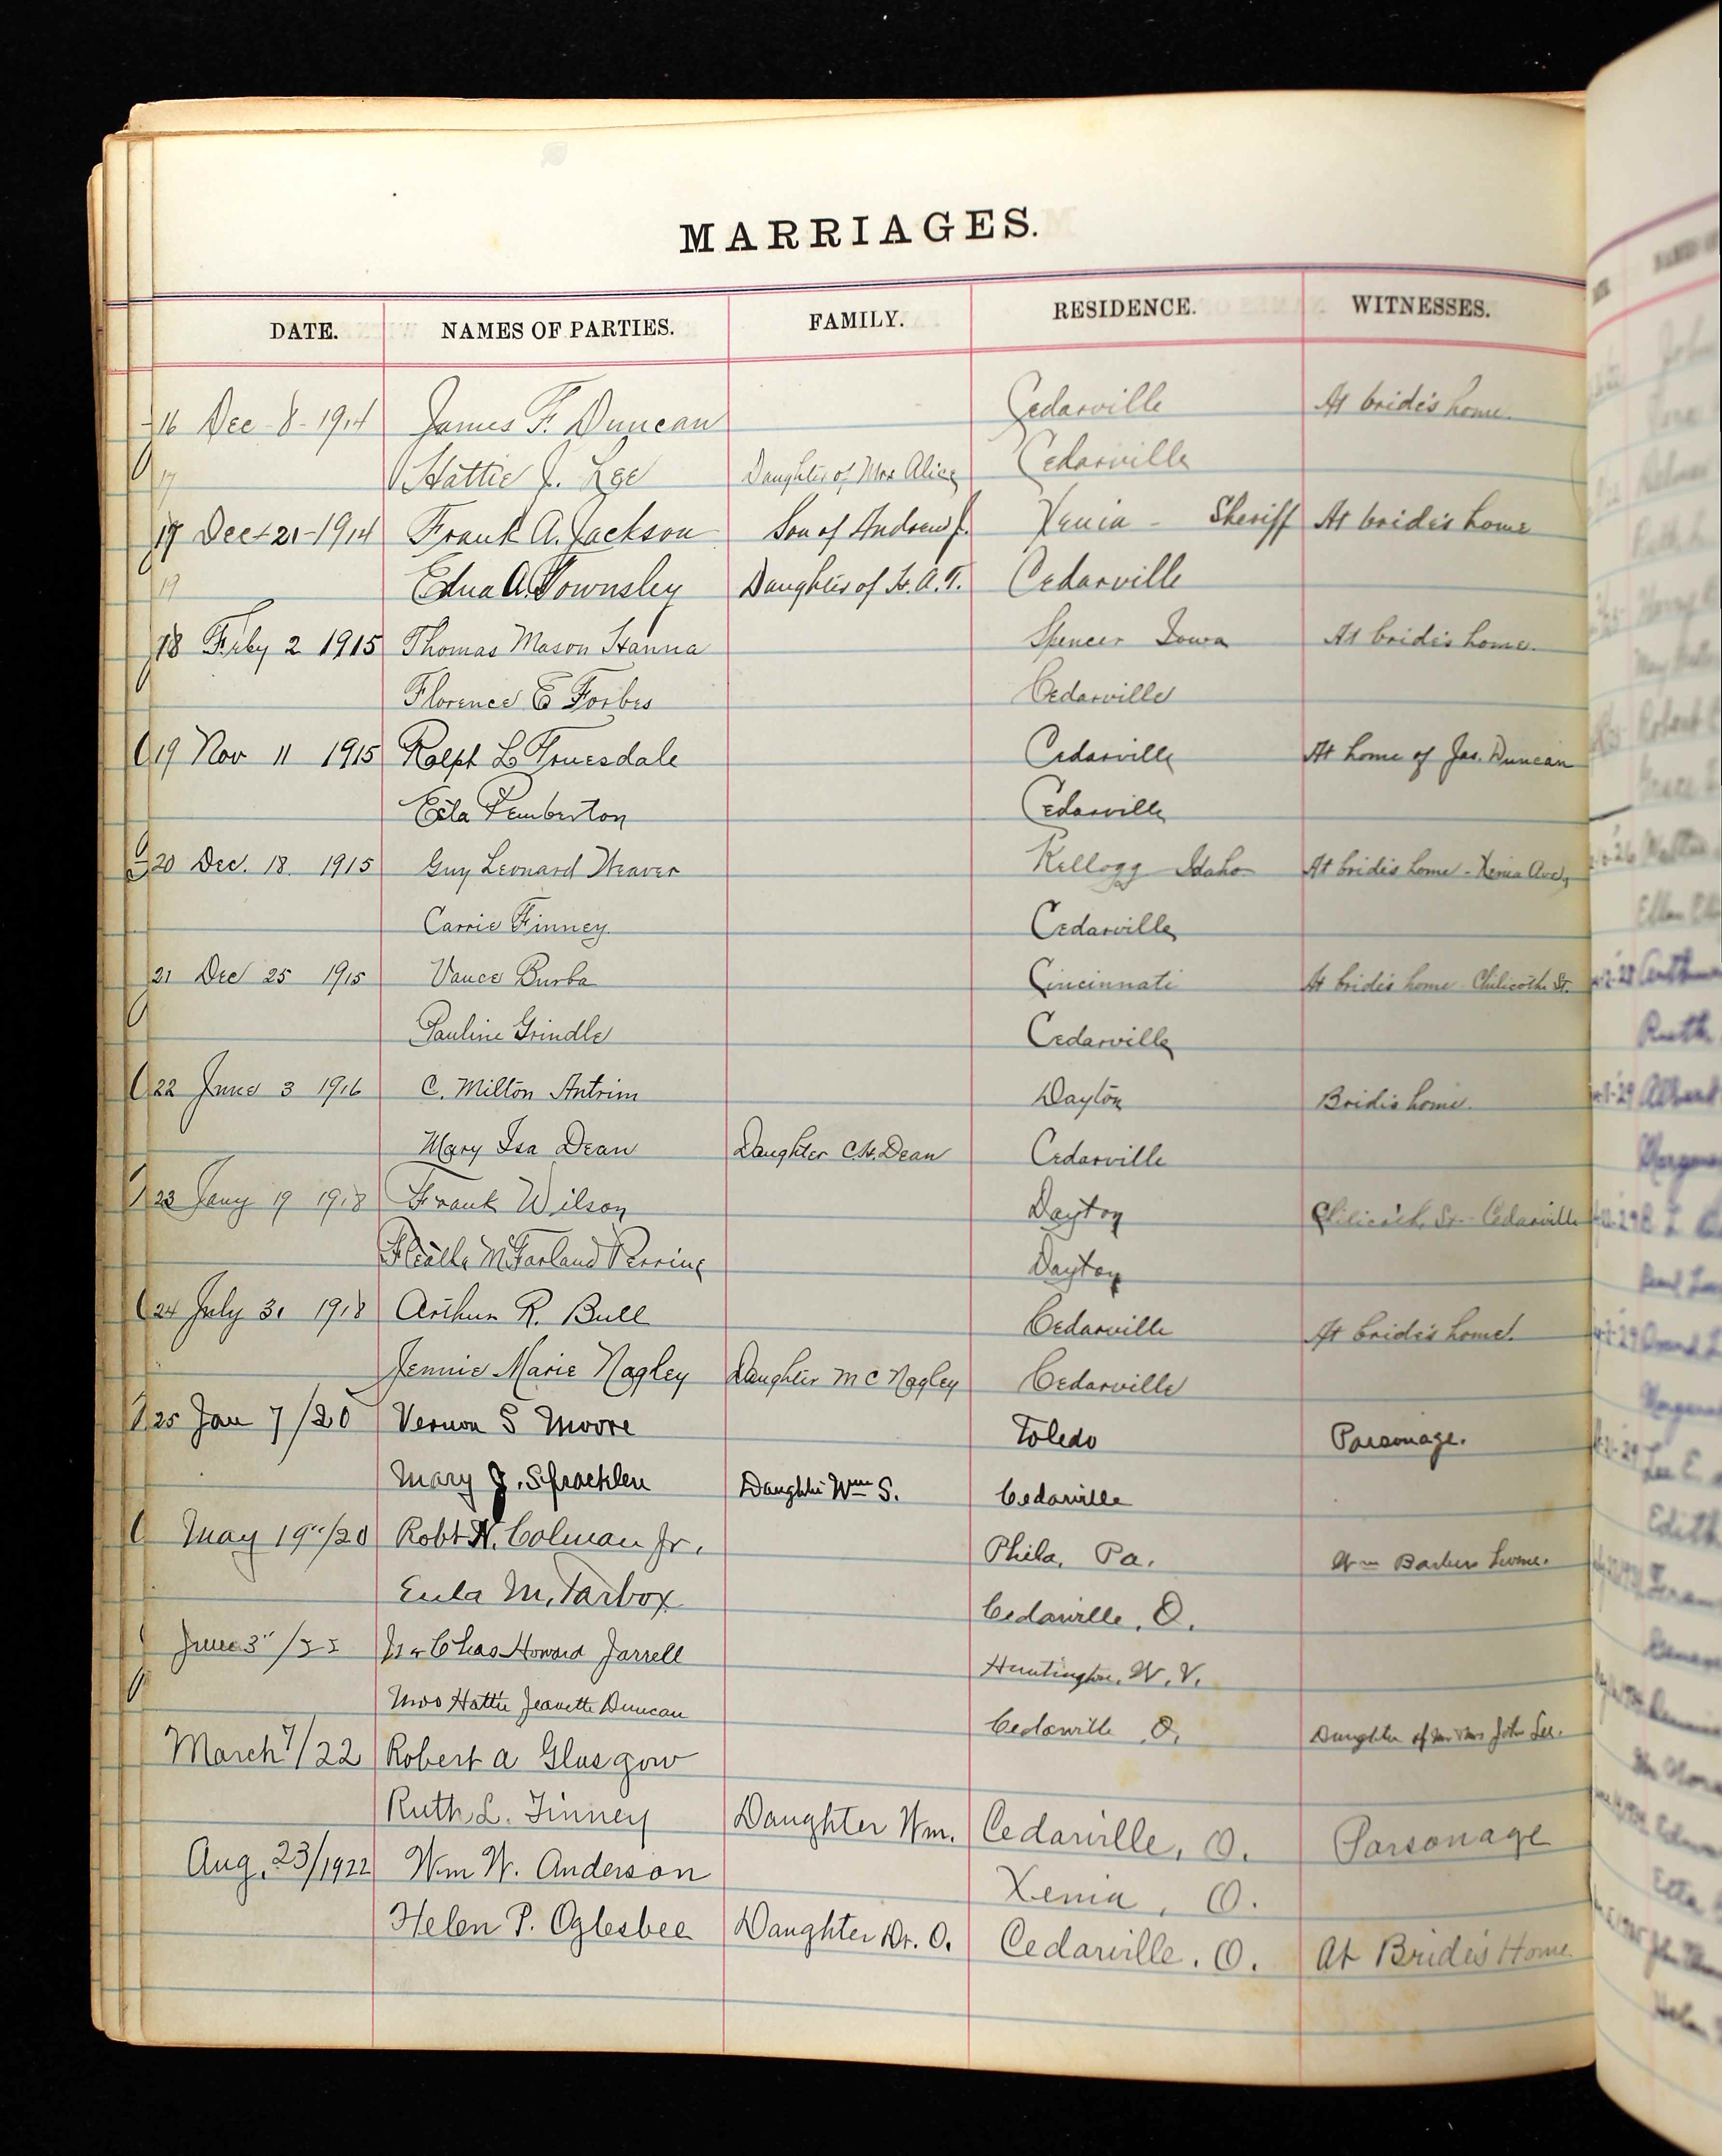 MARRIAGES.
DATE. NAMES OF PARTIES. FAMILY. RESIDENCE. WITNESSES.
16 Dec - 8 - 1914 James F. Duncan Cedarville At bride's home.
17 Hattie J. Lee Daughter of Mrs Alice Cedarville
17 Dec - 21 - 1914 Frank A. Jackson Son of Andrew J. Xenia - Sheriff At bride's home
19 Edna A. Townsley Daughter of H. A. T. Cedarville
18 Feby 2 1915 Thomas Mason Hanna Spencer Iowa At bride's home.
Florence E Forbes Cedarville
19 Nov 11 1915 Ralph L Truesdale Cedarville At home of Jas. Duncan
Pemberton Cedarville
20 Dec. 18. 1915 Guy Leonard Weaver Kellogg Idaho At bride's home - Xenia Ave,
Carrie Finney. Cedarville
21 Dec 25 1915 Vance Burba Cincinnati At bride's home - Chilicothe St.
Pauline Grindle Cedarville
22 June 3 1916 C. Milton Antrim Dayton Bride's home.
Mary Isa Dean Daughter C. H. Dean Cedarville
23 Jany 19 1918 Frank Wilson Dayton St. - Cedarville
McFarland Perrine Dayton
24 July 31 1918 Arthur R. Bull Cedarville At bride's home.
Jennie Marie Nagley Daughter M C Nagley Cedarville
25 Jan 7/20 Vernon S Moore Toledo Parsonage.
Mary J. Spracklen Daughter Wm S. Cedarville
May 19"/20 Robt N. Colman Jr. Phila, Pa. Wm Barbers home.
Eula M. Tarbox Cedarville, O.
June 3" Chas Howard Jarrell Huntington, W. V.
Mrs Hattie Jeanette Duncan Cedarville O. Daughter of Mr & Mrs John Lee.
March 7/22 Robert A Glasgow
Ruth L. Finney Daughter Wm. Cedarville, O. Parsonage
Aug. 23/1922 Wm W. Anderson Xenia, O.
Helen P. Oglesbee Daughter Dr. O. Cedarville. O. At Bride's Home